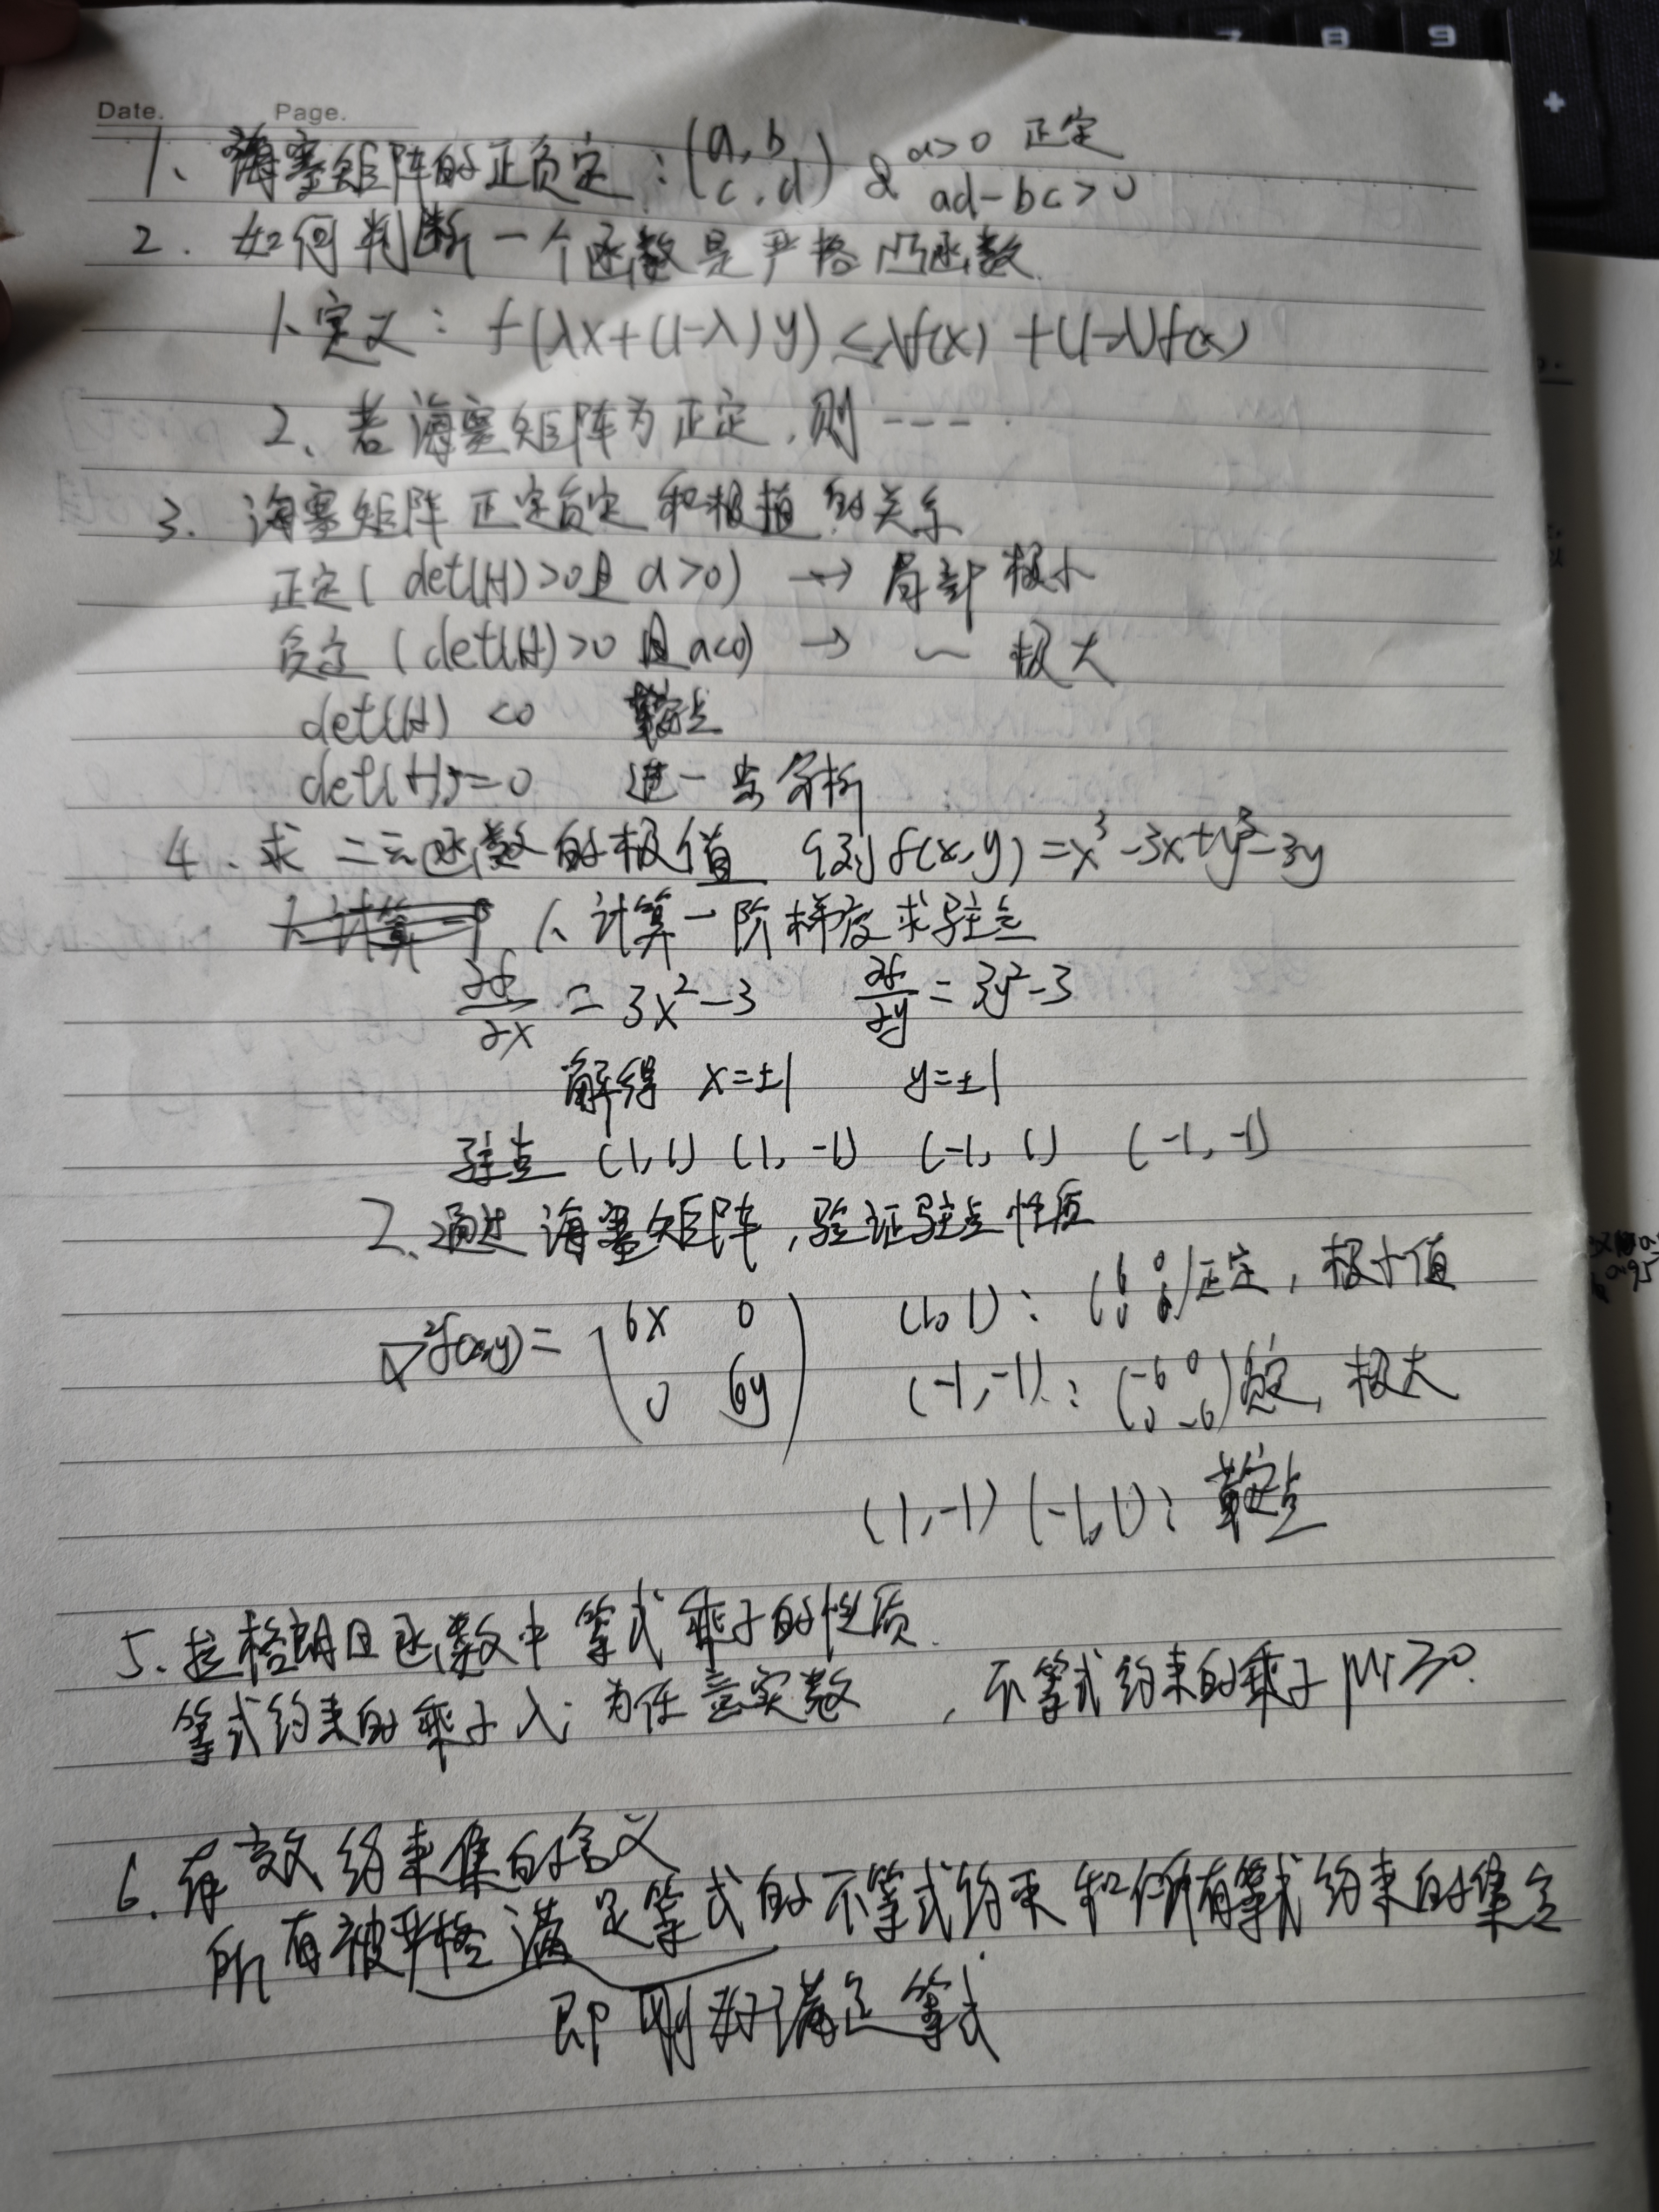 Date. Page.
7 8 9
+
1、海塞矩阵的正负定:(a,b c,d) & a>0 正定 ad-bc>0
2. 如何判断一个函数是严格凸函数.
1、定义: f(λx+(1-λ)y)≤λf(x)+(1-λ)f(x)
2、若海塞矩阵为正定,则----
3. 海塞矩阵正定负定和极值的关系
正定(det(H)>0且a>0) → 局部极小
负定(det(H)>0且a<0) → ~ 极大
det(H) <0 鞍点
det(H)=0 进一步分析
4. 求二元函数的极值 例f(x,y)=x³-3x+y³-3y
1、计算一阶 1、计算一阶梯度求驻点
∂f/∂x = 3x²-3 ∂f/∂y = 3y²-3
解得 x=±1 y=±1
驻点 (1,1) (1,-1) (-1,1) (-1,-1)
2、通过海塞矩阵,验证驻点性质
∇²f(x,y)= (6x 0 0 6y) (1,1): (6 0 0 6)正定,极小值
(-1,-1): (-6 0 0 -6)负定,极大
(1,-1) (-1,1): 鞍点
5. 拉格朗日函数中等式乘子的性质.
等式约束的乘子λi为任意实数,不等式约束的乘子μi≥0.
6. 有效约束集的含义
所有被严格满足等式的不等式约束和所有等式约束的集合
即刚好满足等式